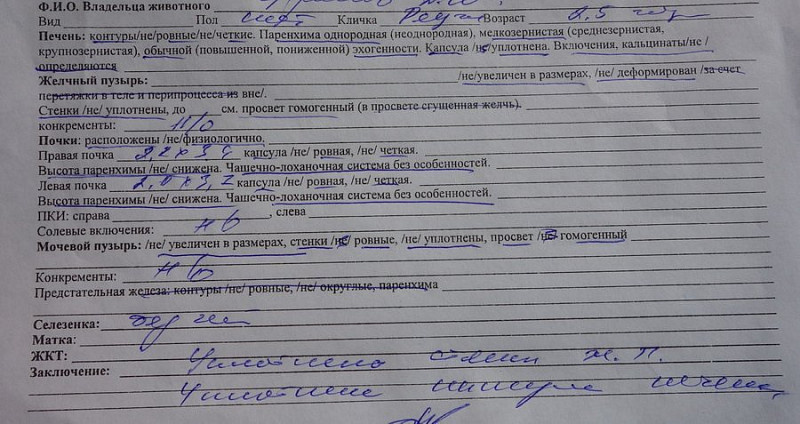 Ф.И.О. Владельца животного
Вид Пол Кличка Возраст 2,5
Печень: контуры/не/ровные/не/четкие. Паренхима однородная (неоднородная), мелкозернистая (среднезернистая,
крупнозернистая), обычной (повышенной, пониженной) эхогенности. Капсула /не/уплотнена. Включения, кальцинаты/не /
определяются
Желчный пузырь: /не/увеличен в размерах, /не/ деформирован /за счет
перетяжки в теле и перипроцесса из вне/.
Стенки /не/ уплотнены, до см. просвет гомогенный (в просвете сгущенная желчь).
конкременты: н/о
Почки: расположены /не/физиологично.
Правая почка 2,2 х 3, капсула /не/ ровная, /не/ четкая.
Высота паренхимы /не/ снижена. Чашечно-лоханочная система без особенностей.
Левая почка 2,0 х 3,2 капсула /не/ ровная, /не/ четкая.
Высота паренхимы /не/ снижена. Чашечно-лоханочная система без особенностей.
ПКИ: справа , слева
Солевые включения: н/о
Мочевой пузырь: /не/ увеличен в размерах, стенки /не/ ровные, /не/ уплотнены, просвет /не/ гомогенный
Конкременты: н/о
Предстательная железа: контуры /не/ ровные, /не/ округлые, паренхима
Селезенка:
Матка:
ЖКТ:
Заключение: Уплотнено стенки ж. п.
Уплотнена капсула печени,